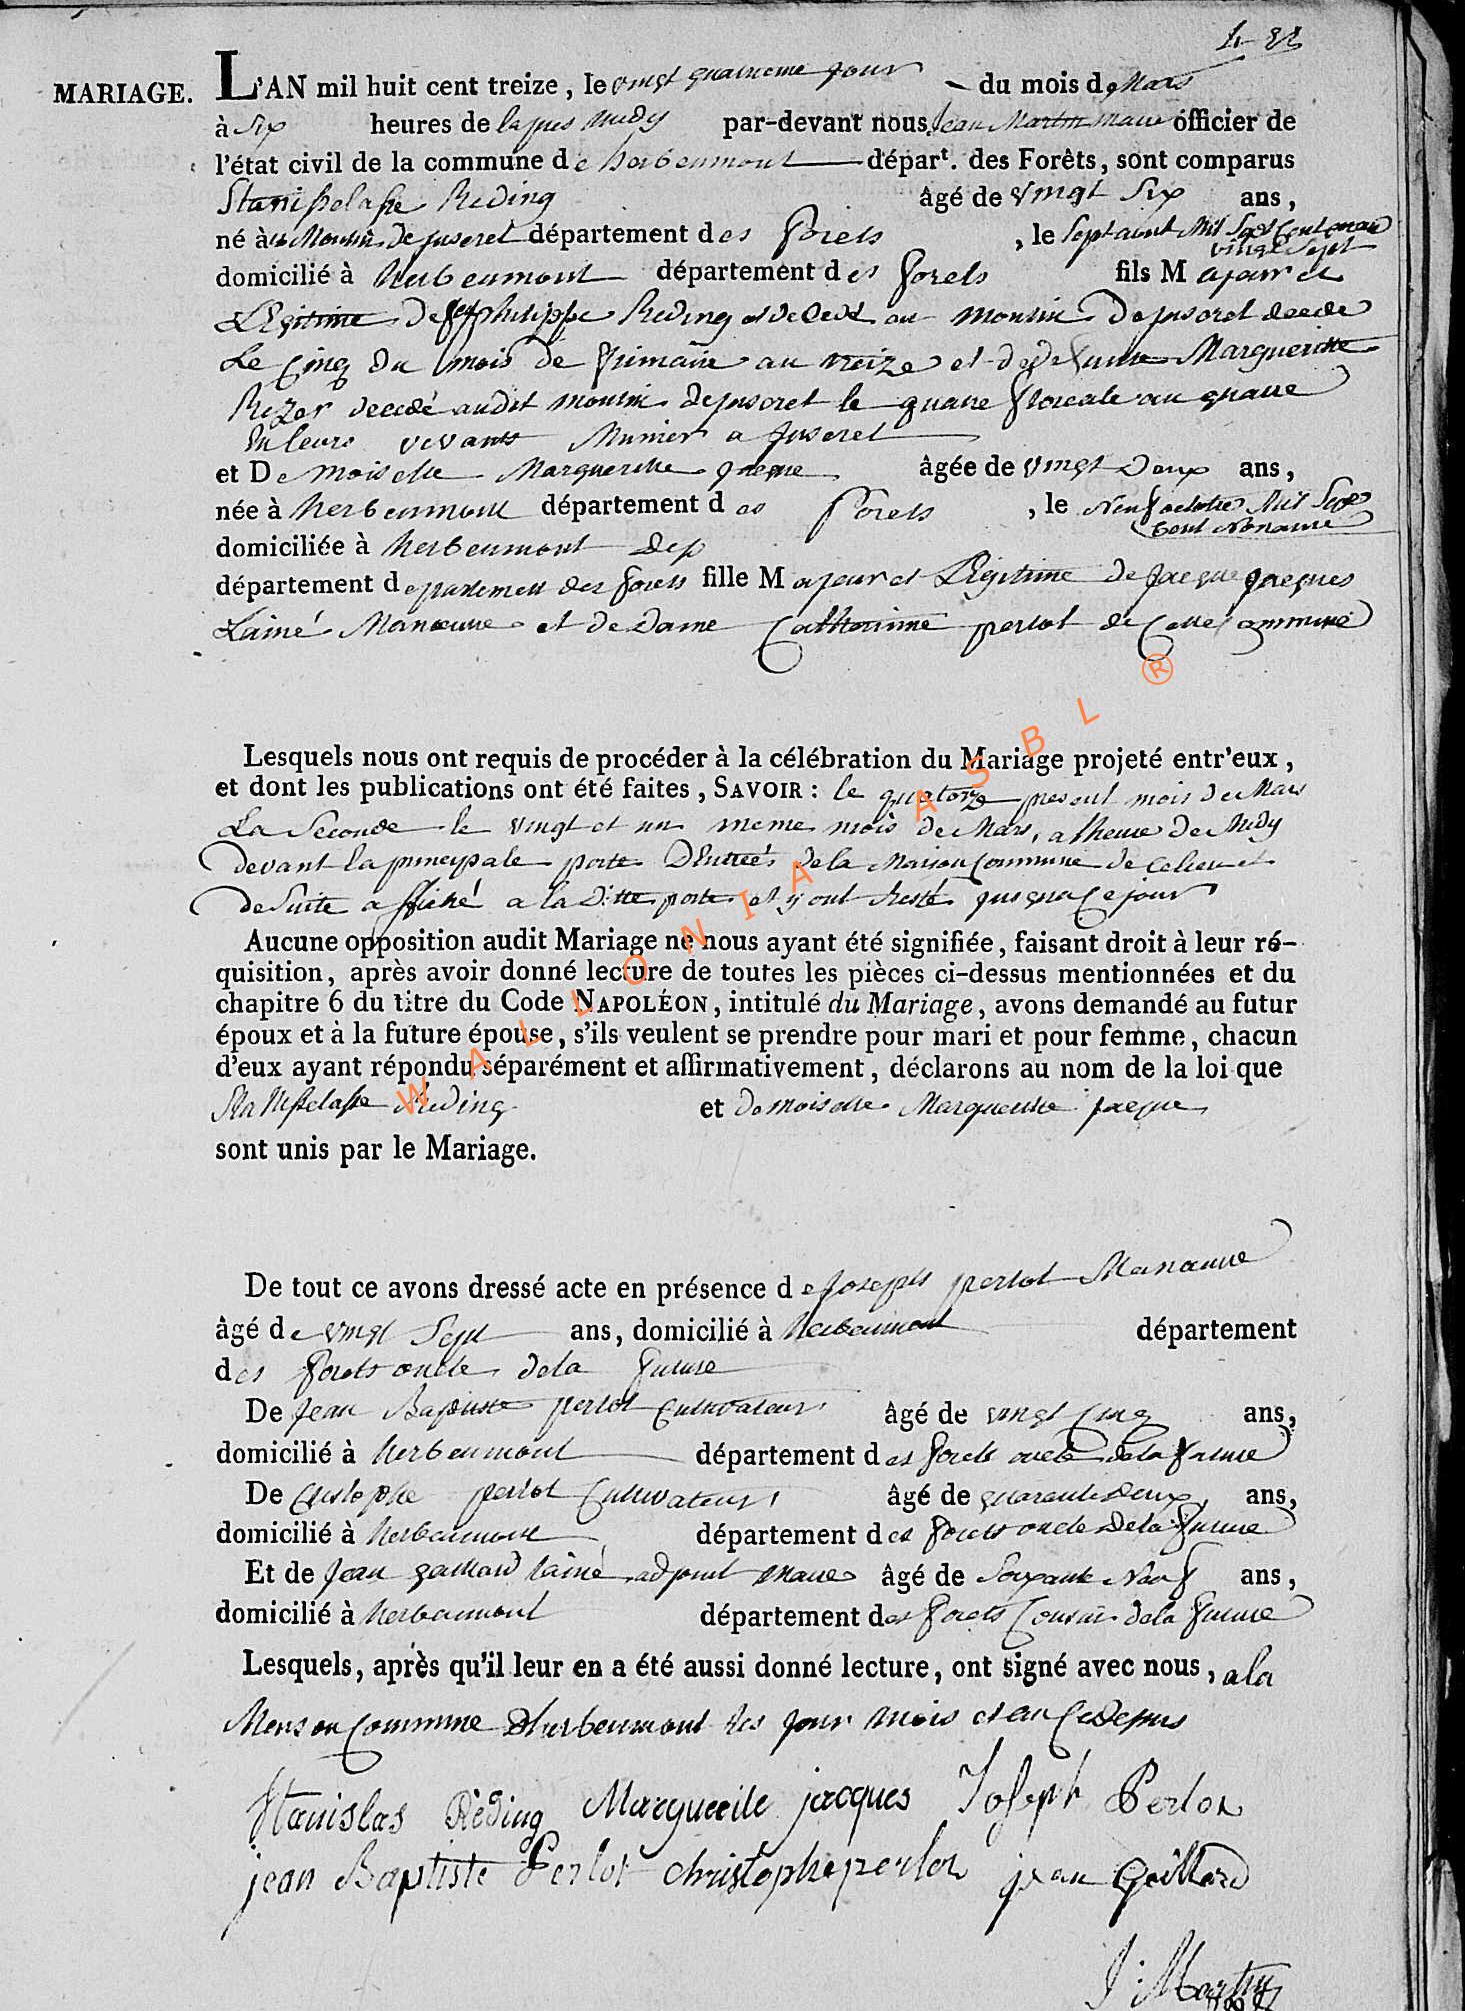 MARIAGE.
L'AN mil huit cent treize, le vingt quatrieme jour du mois de Mars
à Six heures de lapres Midy par-devant nous Jean Martin maire officier de
l'état civil de la commune de herbeumont départ. des Forêts, sont comparus
Stanisselasse Reding âgé de vingt Six ans,
né à Moulin de juseret département des forets, le Sept aout Mil Sept Cent
vingt Sept
domicilié à herbeumont département des forets fils Majeur et
LEgitime de Philippe Reding et decedé au moulin De juseret decede
Le Cinq du mois de frimaire an treize et de defunte Margueritte
Rezer decedé audit moulin de juseret le quatre floreale an quatre
En leurs vivants Munier a juseret
et Demoiselle Margueritte jacque âgée de vingt Deux ans,
née à herbeumont département des forets, le Neuf octobre Mil Sept
Cent Nonante
domiciliée à herbeumont Dep
département departement des forets fille Majeur et LEgitime de jacque jacques
Lainé Manœuvre et de Dame Catherinne perlot de Cette Commune
Lesquels nous ont requis de procéder à la célébration du Mariage projeté entr'eux,
et dont les publications ont été faites, SAVOIR : le quatorze present mois de Mars
La Seconde le vingt et un meme mois de Mars, a lheure de Midy
devant la principale porte DEntreés de la Maison Commune de ce lieu et
de Suite affiché a la Ditte porte et y ont Resté jusqua Ce jour
Aucune opposition audit Mariage ne nous ayant été signifiée, faisant droit à leur ré-
quisition, après avoir donné lecture de toutes les pièces ci-dessus mentionnées et du
chapitre 6 du titre du Code NAPOLÉON, intitulé du Mariage, avons demandé au futur
époux et à la future épouse, s'ils veulent se prendre pour mari et pour femme, chacun
d'eux ayant répondu séparément et affirmativement, déclarons au nom de la loi que
Stanisselasse Reding et demoiselle Margueritte jacque
sont unis par le Mariage.
De tout ce avons dressé acte en présence de Joseph perlot Manœuvre
âgé de vingt Sept ans, domicilié à herbeumont département
des forets oncle de la future
De Jean Baptiste perlot Cultivateur âgé de vingt Cinq ans,
domicilié à herbeumont département des forets oncle de la future
De Cristophe perlot Cultivateur âgé de quarente Deux ans,
domicilié à herbeumont département des forets oncle De la future
Et de Jean gaillard lainé adjoint maire âgé de Soixante Neuf ans,
domicilié à herbeumont département des forets Cousin de la future
Lesquels, après qu'il leur en a été aussi donné lecture, ont signé avec nous, a la
Maison Commune Dherbeumont les jour mois et an
Stanislas Réding Marguerite jacques Joseph Perlot
jean Baptiste Perlot christophe perlot jean Gaillard
J: Martin
WALLONIA ASBL ®